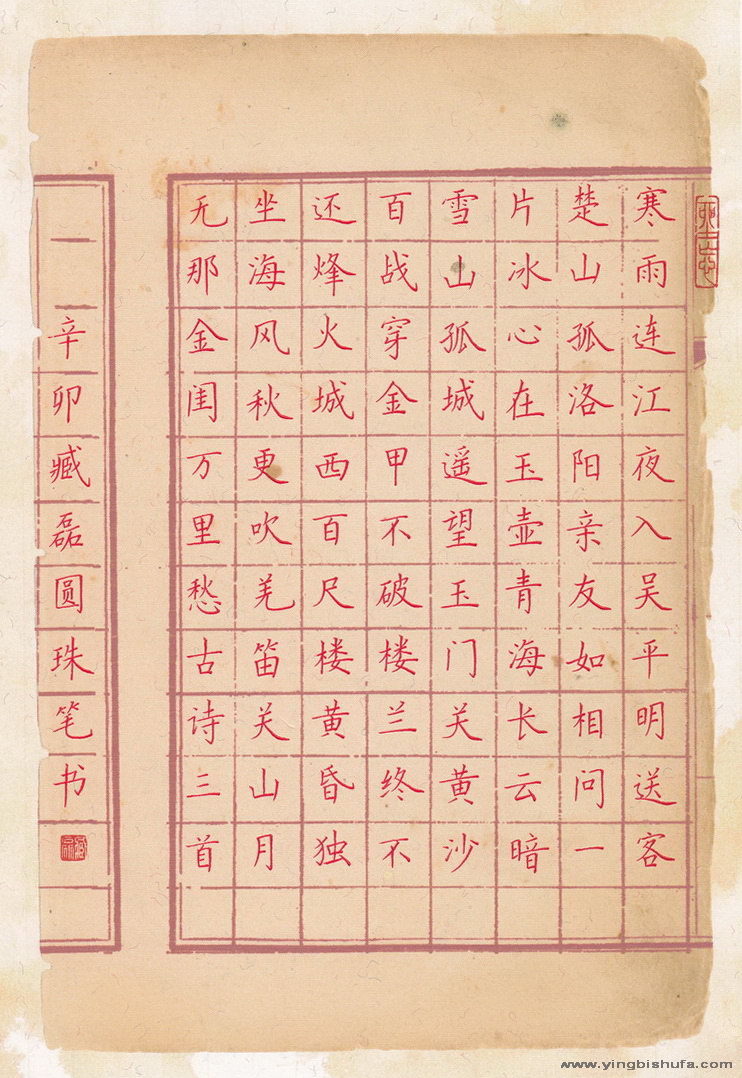 寒雨连江夜入吴平明送客
楚山孤洛阳亲友如相问一
片冰心在玉壶青海长云暗
雪山孤城遥望玉门关黄沙
百战穿金甲不破楼兰终不
还烽火城西百尺楼黄昏独
坐海风秋更吹羌笛关山月
无那金闺万里愁古诗三首
辛卯臧磊圆珠笔书
www.yingbishufa.com